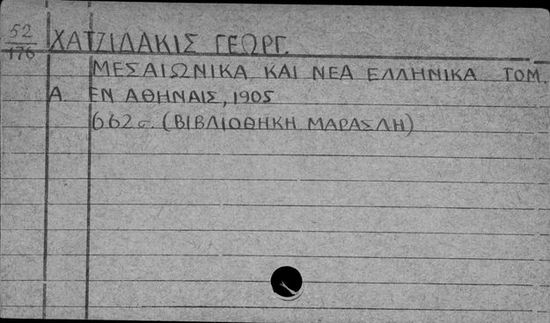 52
176
ΧΑΤΖΙΔΑΚΙΣ ΓΕΩΡΓ.
ΜΕΣΑΙΩΝΙΚΑ ΚΑΙ ΝΕΑ ΕΛΛΗΝΙΚΑ ΤΟΜ.
Α. ΕΝ ΑΘΗΝΑΙΣ, 1905
662σ. (ΒΙΒΛΙΟΘΗΚΗ ΜΑΡΑΣΛΗ)